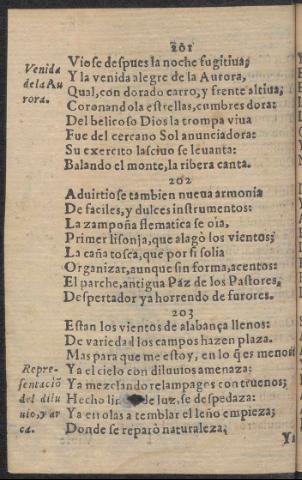 201
Viose despues la noche fugitiua,
Y la venida alegre de la Aurora,
Qual, con dorado carro, y frente altiua,
Coronandola estrellas, cumbres dora:
Del belicoso Dios la trompa viua
Fue del cercano Sol anunciadora:
Su exercito lasciuo se leuanta:
Balando el monte, la ribera canta.
Venida
de la Au
rora.
202
Aduirtiose tambien nueua armonia
De faciles, y dulces instrumentos:
La zampoña flematica se oìa,
Primer lisonja, que alagò los vientos;
La caña tosca, que por si solia
Organizar, aunque sin forma, acentos:
El parche, antigua Paz de los Pastores,
Despertador ya horrendo de furores.
203
Estan los vientos de alabança llenos:
De variedad los campos hazen plaza.
Mas para que me estoy, en lo q̃ es menos
Ya el cielo con diluuios amenaza:
Ya mezclando relampagos con truenos;
Hecho de luz, se despedaza:
Ya en olas a temblar el leño empieza;
Donde se reparò naturaleza;
Repre-
sentaciõ
del dilu
uio, y ar
ca.